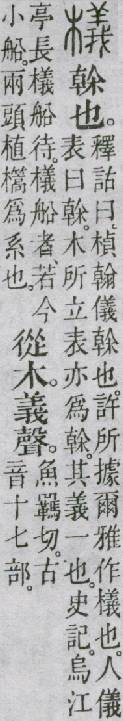 檥榦也。
釋詁曰。楨翰儀榦也。許所據爾雅作檥也。人儀
表曰榦。木所立表亦爲榦。其義一也。史記。烏江
亭長檥船待。檥船者、若今
小船。兩頭植檣爲系也。
從木。義聲。
魚羈切。古
音十七部。